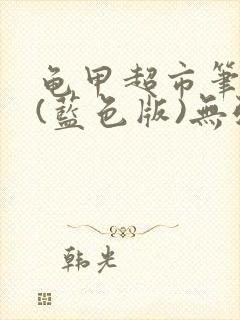 龟甲超市筆
(藍色版)無
韩光